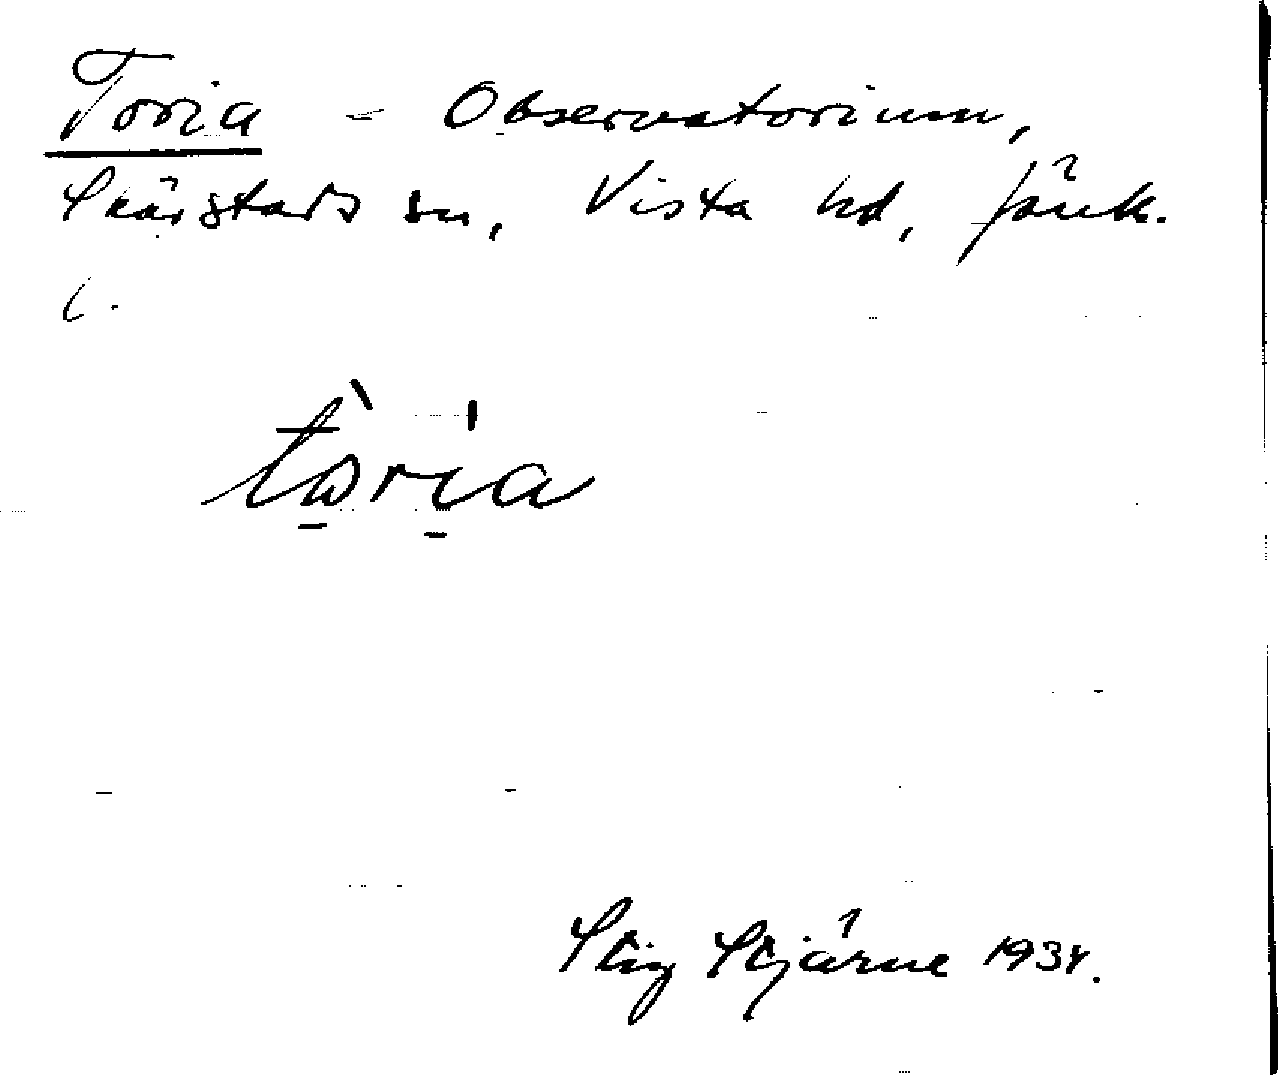 Toria - Observatorium,
Skärstads sn, Vista hd, Jönk.
l.
tòria
Stig Stjärne 1934.